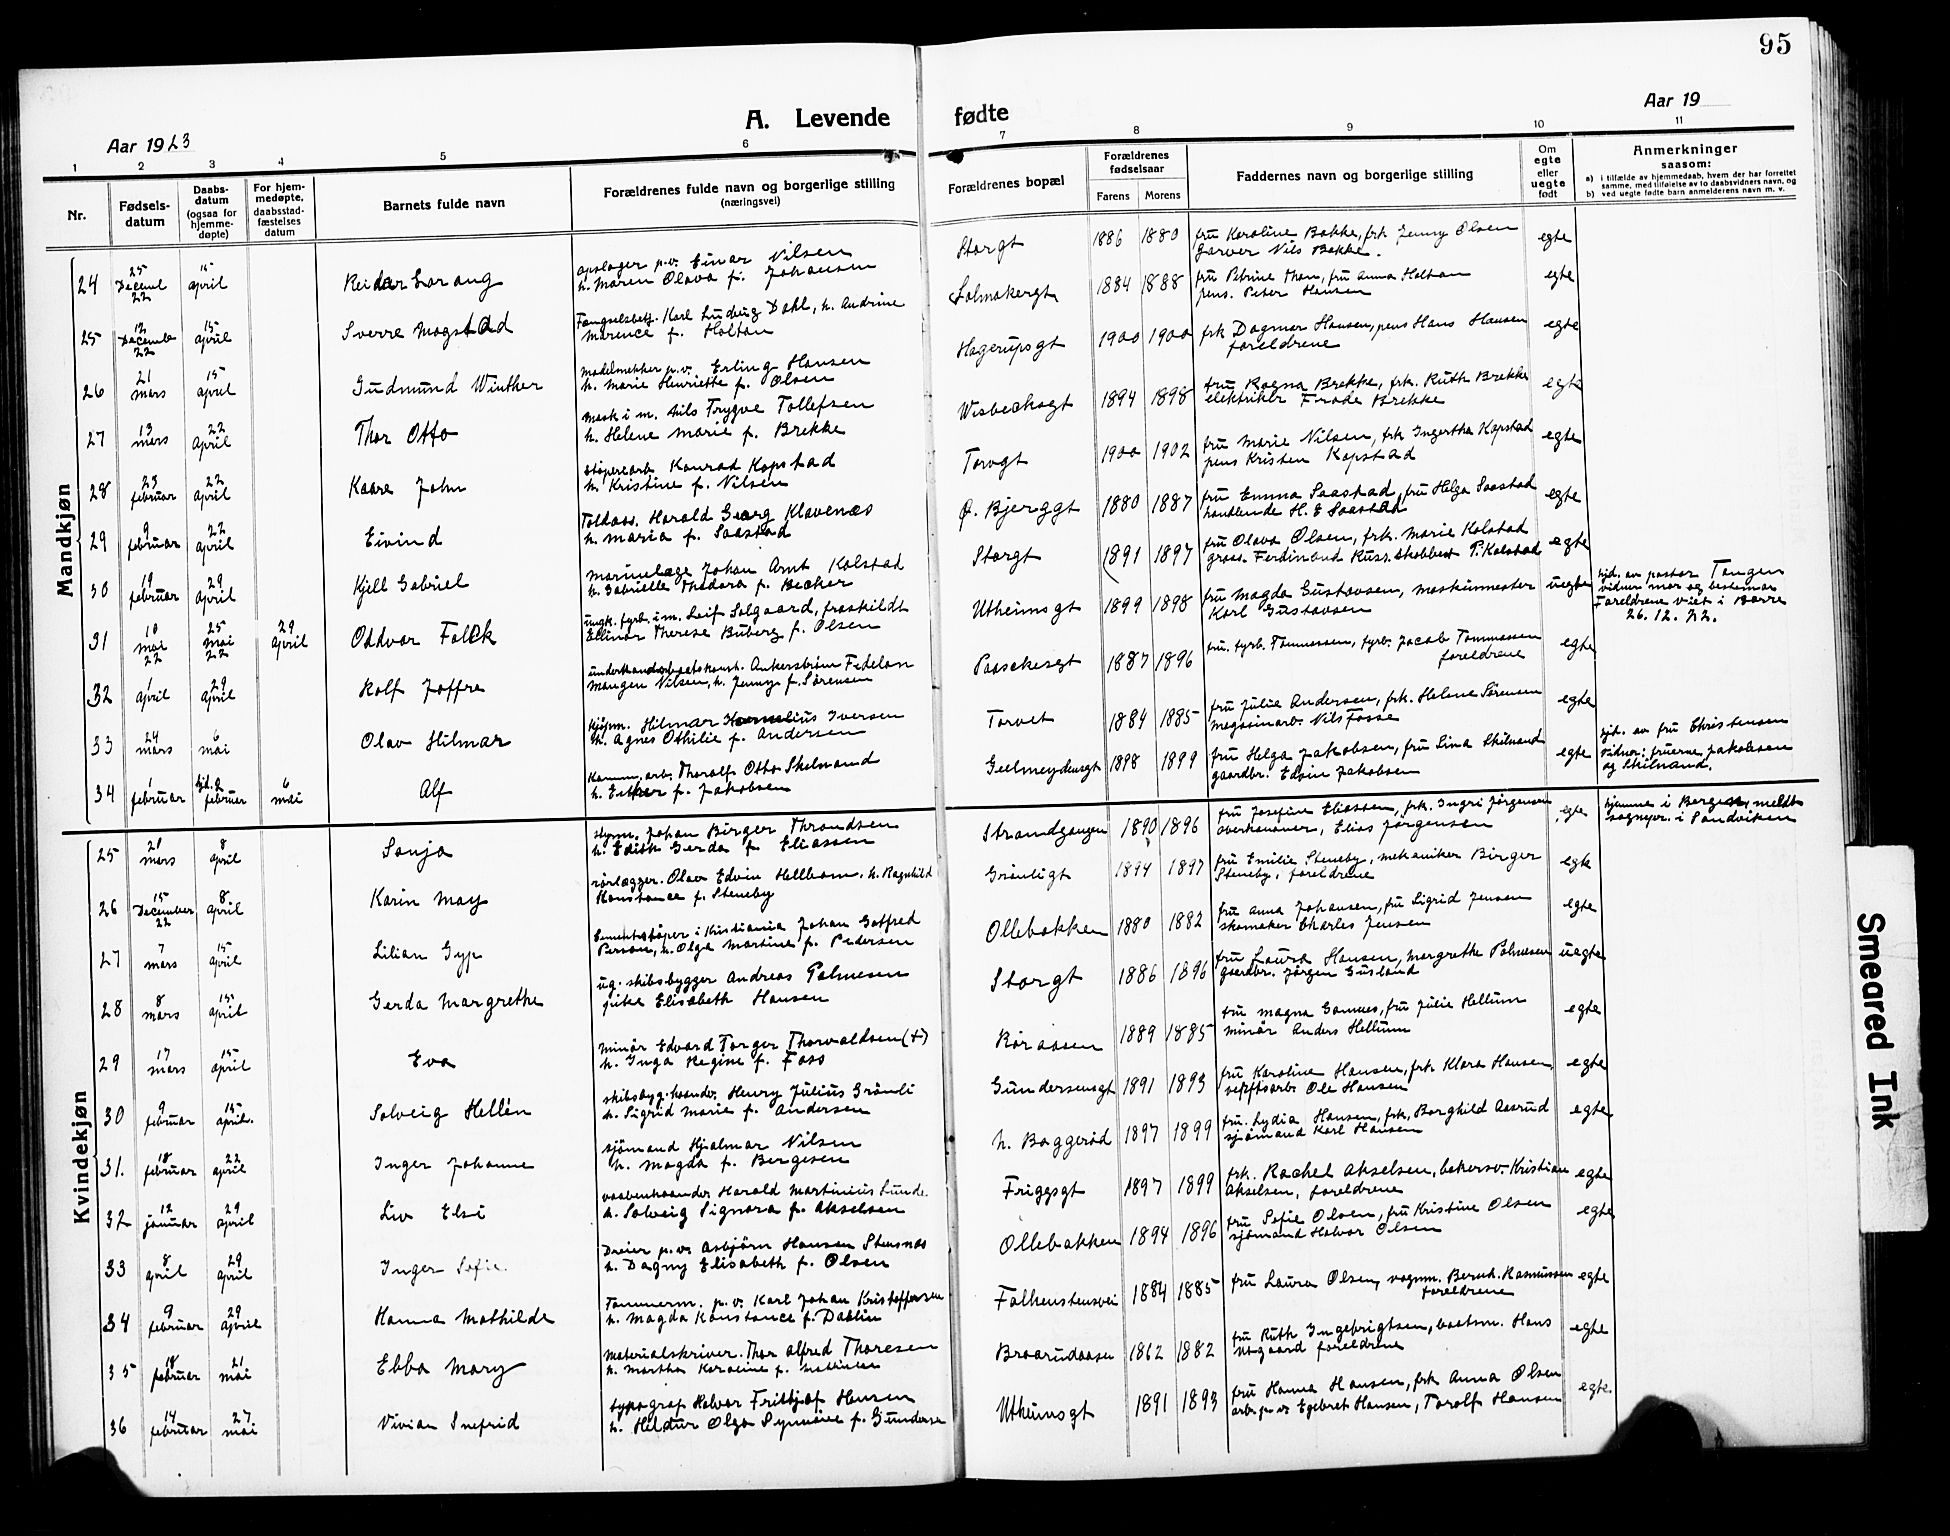 95
Aar 1923
A. Levende fødte
Aar 19
1 2 3 4 5 6 7 8 9 10 11
Nr.
Fødsels-
datum
Daabs-
datum
(ogsaa for
hjemme-
døpte)
For hjem-
medøpte,
daabsstad-
fæstelses
datum
Barnets fulde navn
Forældrenes fulde navn og borgerlige stilling
(næringsvei)
Forældrenes bopæl
Forældrenes
fødselsaar
Farens Morens
Faddernes navn og borgerlige stilling
Om
egte
eller
uegte
født
Anmerkninger
saasom:
a) i tilfælde av hjemmedaab, hvem der har forrettet
samme, med tilføielse av to daabsvidners navn, og
b) ved uegte fødte barn anmelderens navn m. v.
Mandkjøn
24 25 Decembr 22 15 april Reidar Gorang
opslager p.v. Einar Nilsen
h. Maren Olava f. Johansen
Storgt 1886 1880
fru Karoline Bakke, frk Jenny Olsen
Garver Nils Bakke.
egte
25 12 Decembr 22 15 april Sverre Magstad
Fængselsbetj. Karl Ludvig Dahl, h. Andrine
Marence f. Holtan
1884 1888
fru Petrine Thon, fru Anna Holtan
pens. Peter Hansen
egte
26 21 mars 15 april Gudmund Winther
modelsnekker p.v. Erling Hansen
h. Marie Henriette f. Olsen
Hagerupsgt 1900 1900
frk Dagmar Hansen, pens Hans Hansen
foreldrene
egte
27 13 mars 22 april Thor Otto
mask i m. Nils Trygve Tollefsen
h. Helene Marie f. Brekke
Wisbechsgt 1894 1898
fru Ragna Brekke, frk. Ruth Brekke
elektriker Frode Brekke
egte
28 23 februar 22 april Kaare John
støperiarb Konrad Kopstad
h. Kristine f. Nilsen
Torvgt 1900 1902
fru Marie Nilsen, frk Ingertha Kopstad
pens Kristen Kopstad
egte
29 9 februar 22 april Eivind
Toldass. Harald Georg Klavenæs
h. Maria f. Saastad
Ø. Bjerggt 1880 1887
fru Emma Saastad, fru Helga Saastad
handlende H. E Saastad
egte
30 19 februar 29 april Kjell Gabriel
Marinelæge Johan Arnt Kolstad
h. Gabrielle Theodora f. Becker
Storgt 1891 1897
fru Olava Olsen, frk. Marie Kolstad
gross. Ferdinand Russ. skobbest P. Kolstad
egte
31 10 mai 22 25 mai 22 29 april Oddvar Falck
ungk. fyrb. i m. Leif Solgaard, fraskildt
Ellinor Therese Buberg f. Olsen
Utheimsgt 1899 1898
fru Magda Gustavsen, maskinmester
Karl Gustavsen
uegte
hjd. av pastor Tangen
vidner mor og bestemor
Foreldrene viet i Borre
26. 12. 22.
32 1 april 29 april Rolf Joffre
Mangen Nilsen, h. Jenny f. Sørensen
Paaskesgt 1887 1896
fru. fyrb. Tommessen, fyrb. Jacob Tommassen
foreldrene
egte
33 24 mars 6 mai Olav Hilmar
kjøpm. Hilmar Kornelius Iversen
h. Agnes Othilie f. Andersen
Torvet 1884 1885
fru Julie Andersen, frk. Helene Sørensen
magasinarb. Nils Fosse
egte
34 1 februar hjd. 2 februar 6 mai Alf
Komm. arb. Thoralf Otto Skilnand
h. Esther f. Jakobsen
Geelmeydensgt 1898 1899
fru Helga Jakobsen, fru Lina Skilnand
gaardbr. Edvin Jakobsen
egte
hjd. av fru Christensen
vidner: fruerne Jakobsen
og Skilnand.
Kvindekjøn
25 21 mars 8 april Sonja
styrm. Johan Birger Throndsen
h. Edith Gerda f Eliassen
Strandgangen 1890 1896
fru Josefine Eliassen, frk. Ingri Jørgensen
overkanoner, Elias Jørgensen
egte
hjemme i Bergen, meldt
sognepr. i Sandviken
26 15 December 22 8 april Karin May
rørlægger. Olav Edvin Hellbom. h. Ragnhild
Konstance f. Steneby
Grønligt 1894 1897
fru Emilie Steneby, mekaniker Birger
Steneby, foreldrene
egte
27 7 mars 15 april Lilian Gyp
Cementstøper i Kristiania Johan Gotfred
Person, h. Olga Martine f. Pedersen
Ollebakken 1880 1882
fru Anna Johansen, fru Sigrid Jensen
skomaker Charles Jensen
egte
28 8 mars 15 april Gerda Margrethe
ug. skibsbygger Andreas Palmesen
pike Elisabeth Hansen
Storgt 1886 1896
fru Laura Hansen, Margrethe Palmesen
gaardbr. Jørgen Gusland
uegte
29 17 mars 15 april Eva
minør Edvard Torger Thorvaldsen (+)
h. Inga Regine f. Foss
Røraasen 1889 1885
fru Magna Gannes, fru Julie Hellum
minør Anders Hellum
egte
30 9 februar 15 april. Solveig Hellén
skibsbyg. haandv. Henry Julius Grønli
h. Sigrid Marie f. Andersen
Gundersensgt 1891 1893
fru Karoline Hansen, frk Klara Hansen,
verftsarb. Ole Hansen
egte
31. 18 februar 22 april Inger Johanne
sjømand Hjalmar Nilsen
h. Magda f. Bergesen
N. Baggerød 1897 1899
fru. Lydia Hansen, frk, Borghild Aasrud
sjømand Karl Hansen
egte
32 12 januar 29 april Liv Elsi
vaabenhaandv. Harald Martinius Lunde
h. Solveig Signora f. Akselsen
Friggsgt 1897 1899
frk. Rachel Akselsen, bakersv. Kristian
Akselsen, foreldrene
egte
33 8 april 29 april Inger Sofie.
Dreier p.v. Asbjørn Hansen Stensnæs
h. Dagny Elisabeth f. Olsen
Ollebakken 1894 1896
fru Sofie Olsen, fru Kristine Olsen
sjømand Halvor Olsen
egte
34 9 februar 29 april Hanna Mathilde
Tømmerm. p.v. Karl Johan Kristoffersen
h. Magda Konstance f. Dahlin
Falkenstensvei 1884 1885
fru Laura Olsen, vognm. Bernh. Rasmussen
foreldrene
egte
35 18 februar 21 mai Ebba Mary
Materialskriver. Thor Alfred Thoresen
h. Martha Karoline f.
Braarudaasen 1862 1882
fru Ruth Ingebrigtsen, baatsm. Hans
foreldrene
egte
36 14 februar 27 mai Vivian Snefrid
typograf Halvor Fritjof Hansen
h. Hildur Olga Synnøve f. Gunderse
Utheimsgt 1891 1893
fru Hanna Hansen, frk Anna Olsen
arb. p.v. Egebret Hansen, Torolf Hansen
egte.
Smeared Ink